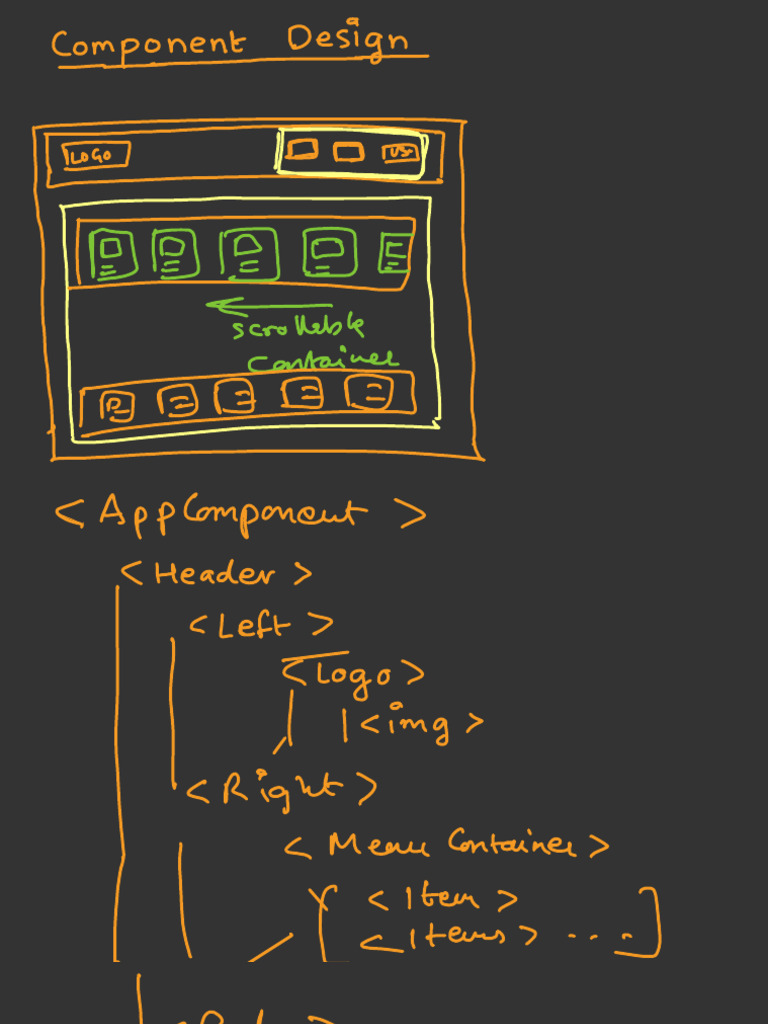 Component Design
LOGO
scrollable
container
<AppComponent>
<Header>
<Left>
<Logo>
<img>
<Right>
<Menu Container>
<Item>
<Items> ....